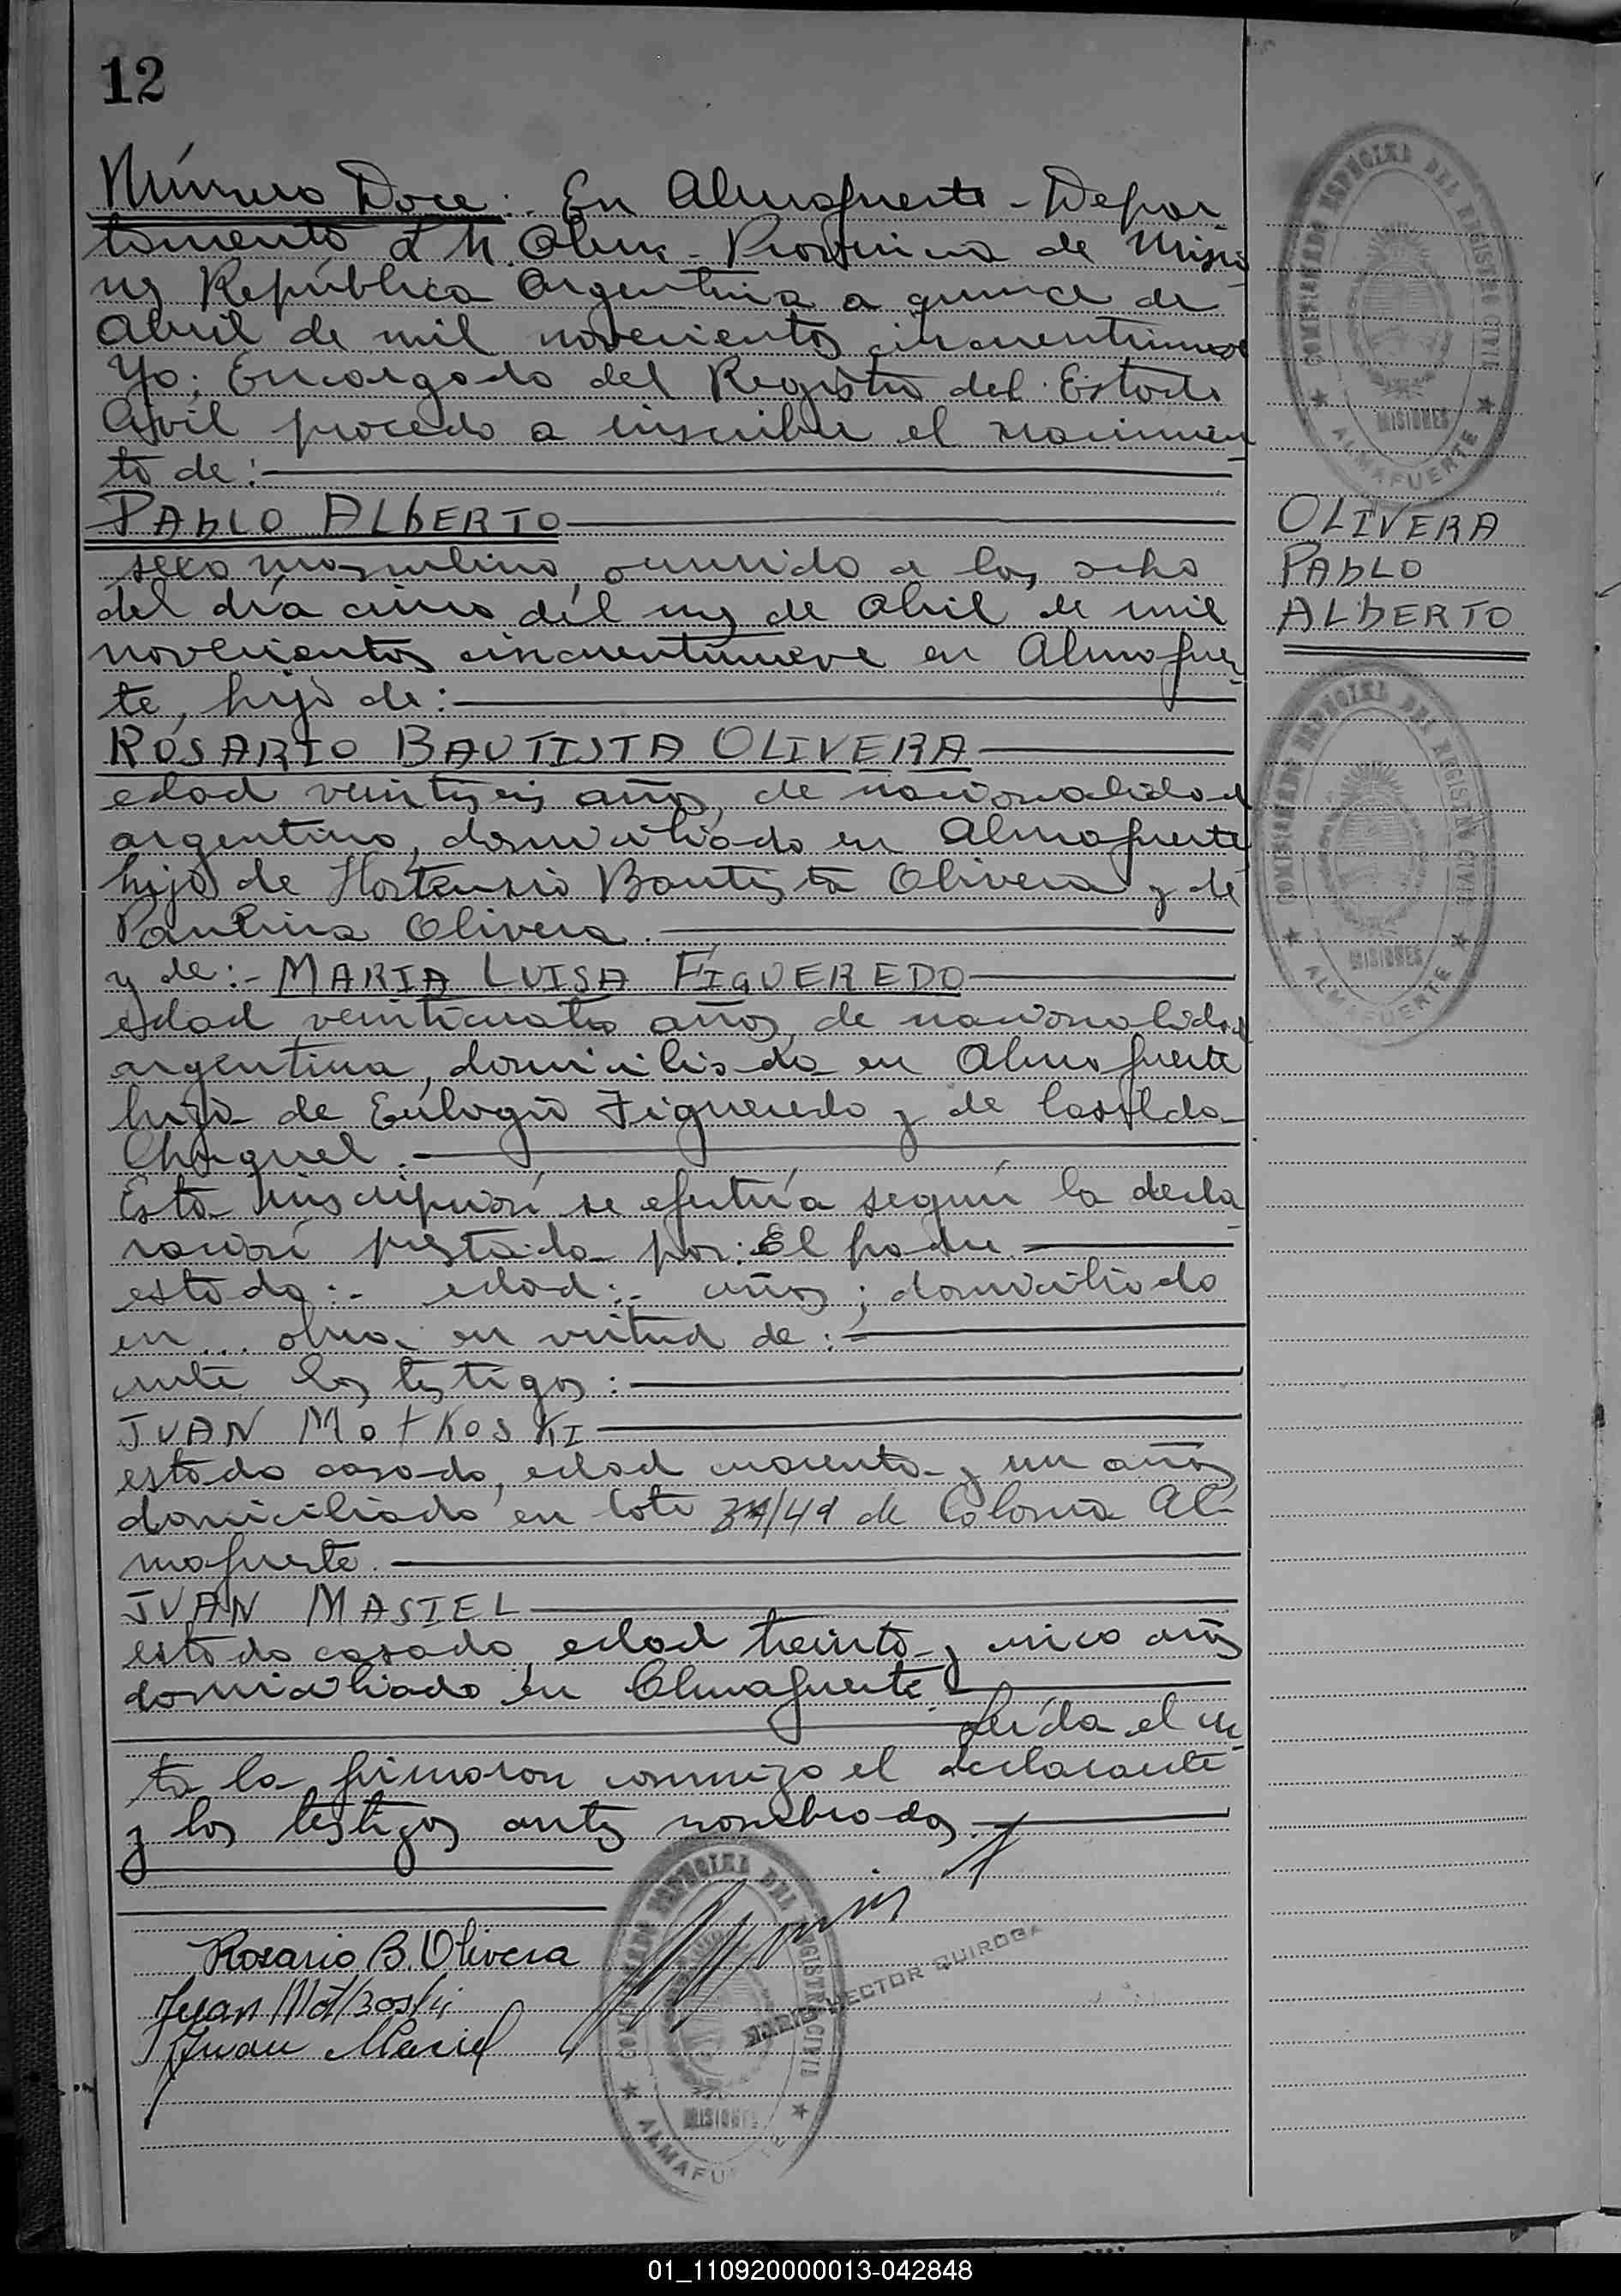 12
Número Doce: En Almafuerte - Depar
tamento L. N. Alem - Provincia de Misio
nes República Argentina a quince de
Abril de mil novecientos cincuentinueve
Yo: Encargado del Registro del Estado
Civil procedo a inscribir el nacimien
to de:
PABLO ALBERTO
sexo masculino, ocurrido a las ocho
del día cinco del mes de Abril de mil
novecientos cincuentinueve en Almafuer
te, hijo de:
ROSARIO BAUTISTA OLIVERA
edad veintiseis años, de nacionalidad
argentino, domiciliado en Almafuerte
hijo de Hortensio Bautista Olivera y de
Paulina Olivera.
y de:- MARIA LUISA FIGUEREDO
edad veinticuatro años, de nacionalidad
argentina, domiciliada en Almafuerte
hija de Eulogio Figueredo y de Casilda
Esta inscripción se efectúa según la decla
ración prestada por: El padre
estado:- edad:- años; domiciliado
en... obra en virtud de:-
ante los testigos:
JUAN MOTKOSKI
estado casado, edad cuarenta y un años
domiciliado en lote de Colonia Al-
mafuerte.
JUAN MASIEL
estado casado, edad treinta y cinco años
domiciliado en Almafuerte.
Leída el ac
ta la firmaron conmigo el declarante
y los testigos antes nombrados.-
Rosario B. Olivera
Juan Motkoski
Juan Maciel
MARIO HECTOR QUIROGA
COMISARIADO ESPECIAL DEL REGISTRO CIVIL
MISIONES
ALMAFUERTE
COMISARIADO ESPECIAL DEL REGISTRO CIVIL
MISIONES
ALMAFUERTE
OLIVERA
PABLO
ALBERTO
COMISARIADO ESPECIAL DEL REGISTRO CIVIL
MISIONES
ALMAFUERTE
01_110920000013-042848